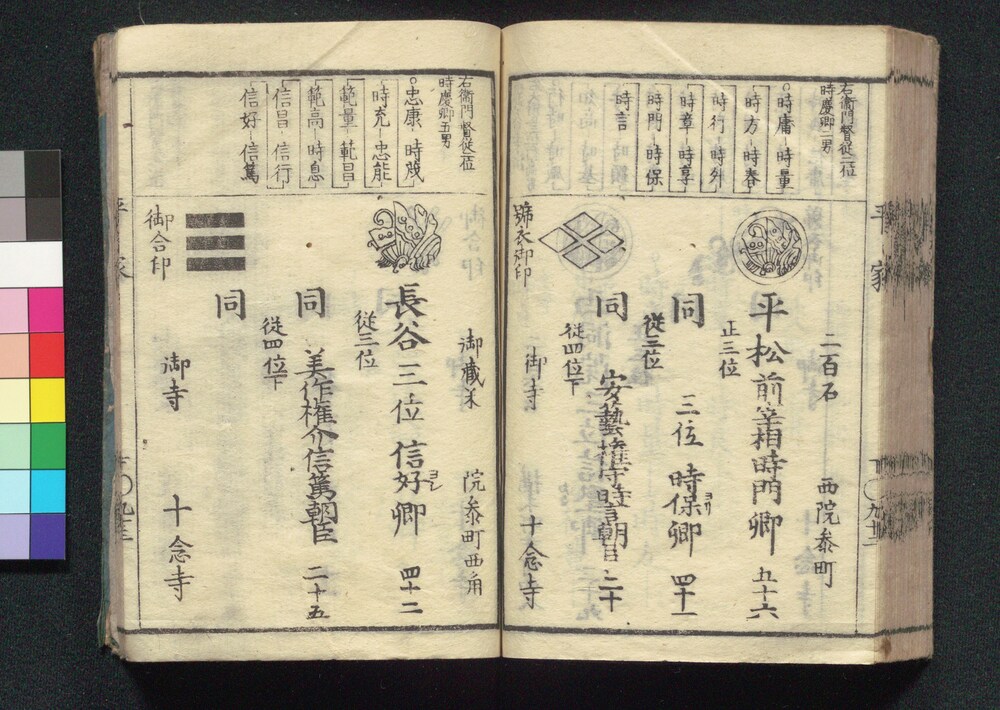 平家
九十三
右衛門督従二位
時慶卿二男
○時庸―時量
時方―時春
時行―時外
時章―時享
時門―時保
時言
二百石 西院参町
平松前宰相時門卿 五十六
正三位
同 三位時保卿 四十一
ヨリ
従三位
同 安藝権守時言朝臣 二十
従四位下
御寺 十念寺
雑衣御印
右衛門督従二位
時慶卿五男
○忠康―時茂
時充―忠能
範量―範昌
範高―時息
信昌―信行
信好―信篤
御蔵米 院参町西角
長谷三位信好卿 四十二
ヨシ
従三位
同 美作権介信篤朝臣 二十五
従四位下
同
御合印
御寺 十念寺
平家
九十三